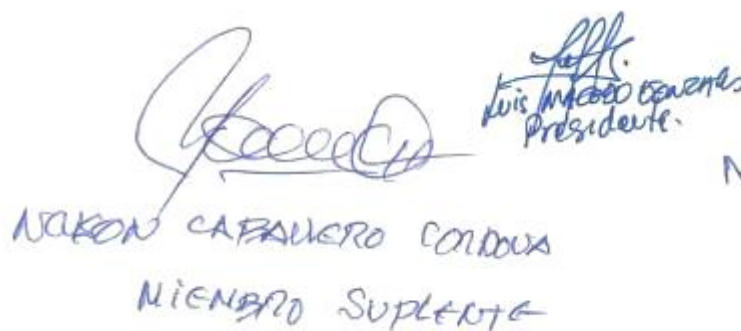 Luis MACEDO GONZALES
Presidente.
N
CABALLERO CORDOVA
MIEMBRO SUPLENTE